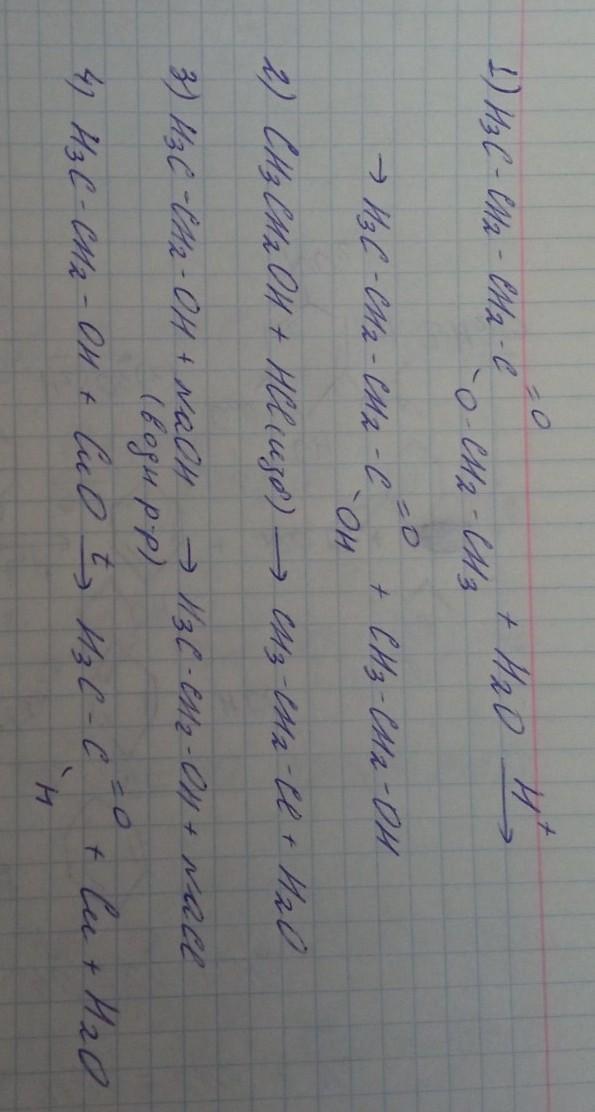 1) H3C-CH2-CH2-C =O `O-CH2-CH3 + H2O H+→
→ H3C-CH2-CH2-C =O `OH + CH3-CH2-OH
2) CH3CH2OH + HCl(изб) → CH3-CH2-Cl + H2O
3) H3C-CH2-OH + NaOH → H3C-CH2-OH + NaCl
(водн р-р)
4) H3C-CH2-OH + CuO t→ H3C-C =O `H + Cu + H2O